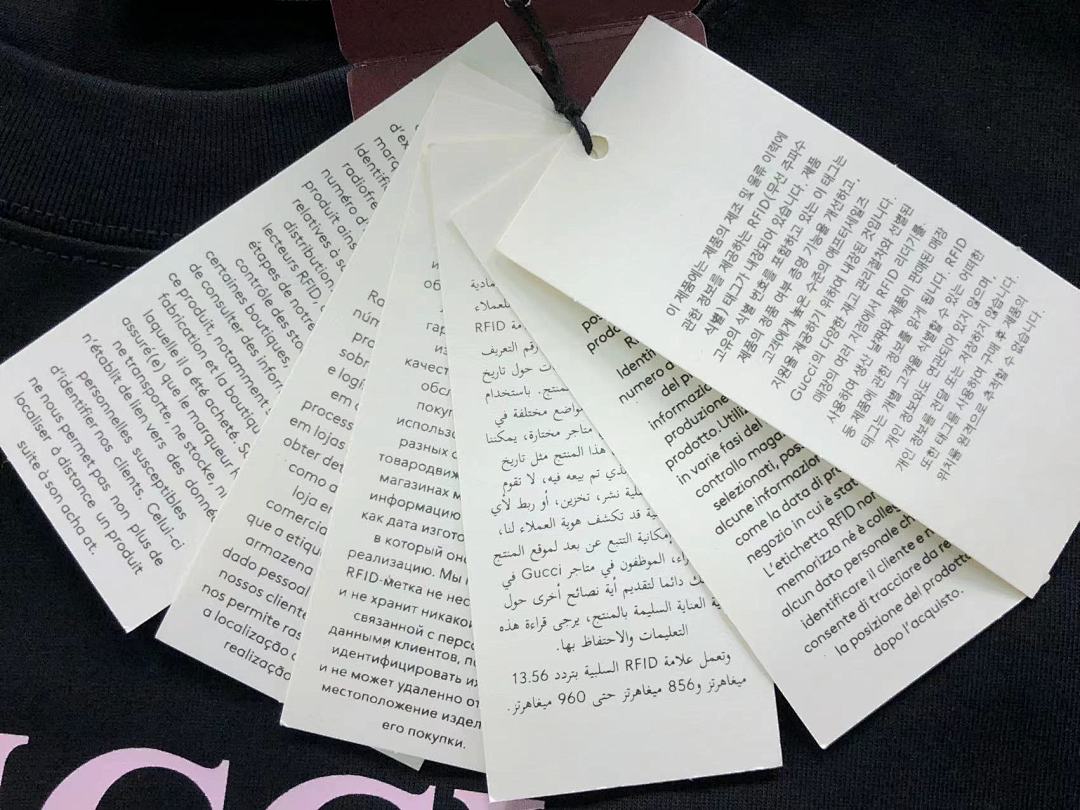 d'ex
marq
Identific
radiofre
numéro d'
produit ains
relatives à s
distribution.
lecteurs RFID,
étapes de notre
contrôle des sto
certaines boutiques,
de consulter des infor
ce produit, notamment
fabrication et la boutiqu
laquelle il a été acheté. S
assuré(e) que le marqueur
ne transporte, ne stocke, ni
n'établit de lien vers des donné
personnelles susceptibles
d'identifier nos clients. Celui-ci
ne nous permet pas non plus de
localiser à distance un produit
suite à son achat.
Ra
núm
pro
sobr
e logí
em
process
em lojas
obter det
como a
loja em
comercia
que a etiqu
armazena
dado pessoal
nossos cliente
nos permite ras
a localização
realização
об
гар
из
качест
обсл
покуп
использо
разных с
товародвиж
магазинах м
информацию
как дата изгото
в который он
реализацию. Мы
RFID-метка не нес
и не хранит никако
связанной с персо
данными клиентов, п
идентифицировать их
и не может удаленно от
местоположение издел
его покупки.
مادية
للعملاء
مة RFID
رقم التعريف
ت حول تاريخ
منتج. باستخدام
مواضع مختلفة في
متاجر مختارة، يمكننا
هذا المنتج مثل تاريخ
لذي تم بيعه فيه، لا تقوم
ملية نشر، تخزين، أو ربط لأي
ية قد تكشف هوية العملاء لنا،
مكانية التتبع عن بعد لموقع المنتج
راء، الموظفون في متاجر Gucci في
ك دائما لتقديم أية نصائح أخرى حول
ية العناية السليمة بالمنتج، يرجى قراءة هذه
التعليمات والاحتفاظ بها.
وتعمل علامة RFID السلبية بتردد 13.56
ميغاهرتز و856 ميغاهرتز حتى 960 ميغاهرتز.
pos
prodo
Identi
numero
del pr
informazio
produzione
prodotto. Utili
in varie fasi del
controllo maga
selezionati, pos
alcune informazion
come la data di prod
negozio in cui è stat
L'etichetta RFID non
memorizza né è colleg
alcun dato personale ch
identificare il cliente e n
consente di tracciare da re
la posizione del prodotto
dopo l'acquisto.
이 제품에는 제품의 제조 및 물류 이력에
관한 정보를 제공하는 RFID(무선 주파수
식별) 태그가 내장되어 있습니다. 제품
고유의 식별 번호를 포함하고 있는 이 태그는
제품의 정품 여부 증명 기능을 개선하고,
고객에게 높은 수준의 애프터세일즈
지원을 제공하기 위하여 내장된 것입니다.
Gucci의 다양한 재고 관리절차와 선별된
매장의 여러 지점에서 RFID 리더기를
사용하여 생산 날짜와 제품이 판매된 매장
등 제품에 관한 정보를 읽게 됩니다. RFID
태그는 개별 고객을 식별할 수 있는 어떠한
개인 정보와도 연관되어 있지 않으며,
개인 정보를 전달 또는 저장하지 않습니다.
또한 태그를 사용하여 구매 후 제품의
위치를 원격으로 추적할 수 없습니다.